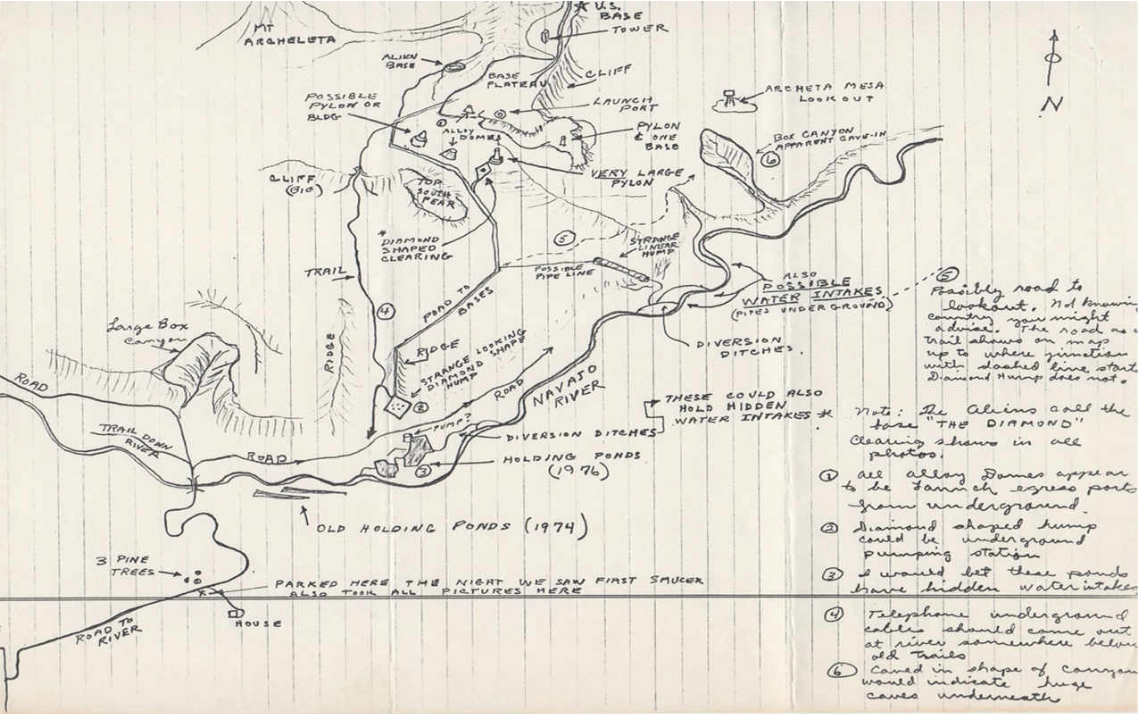 MT
ARCHELETA
U.S.
BASE
TOWER
ALIEN
BASE
BASE
PLATEAU
CLIFF
POSSIBLE
PYLON OR
BLDG
LAUNCH
PORT
ARCHETA MESA
LOOKOUT
N
ALLOY
DOMES
PYLON
& ONE
BASE
BOX CANYON
APPARENT CAVE-IN
6
CLIFF
(BIG)
VERY LARGE
PYLON
TOP
SOUTH
PEAK
DIAMOND
SHAPED
CLEARING
5
STRANGE
LINEAR
HUMP
TRAIL
POSSIBLE
PIPE LINE
ALSO
POSSIBLE
WATER INTAKES
(PIPES UNDERGROUND)
ROAD TO
BASES
4
RIDGE
Large Box
Canyon
RIDGE
DIVERSION
DITCHES
STRANGE LOOKING
DIAMOND SHAPE
HUMP
2
ROAD
NAVAJO
RIVER
ROAD
THESE COULD ALSO
HOLD HIDDEN
WATER INTAKES *
TRAIL DOWN
RIVER
PUMP?
ROAD
DIVERSION DITCHES
HOLDING PONDS
(1976)
3
OLD HOLDING PONDS (1974)
3 PINE
TREES
PARKED HERE THE NIGHT WE SAW FIRST SAUCER
ALSO TOOK ALL PICTURES HERE
HOUSE
ROAD TO
RIVER
5
Possibly road to
lookout. Not knowing
country you might
advise. The road as a
trail shows on map
up to where junction
with dashed line starts
Diamond Hump does not.
Note: The Aliens call the
base "THE DIAMOND"
Clearing shows in all
photos.
1 All alloy Domes appear
to be launch egress ports
from underground.
2 Diamond shaped hump
could be underground
pumping station
3 I would bet these ponds
have hidden water intakes
4 Telephone underground
cables should come out
at river somewhere below
old trails
6 Caved in shape of canyon
would indicate huge
caves underneath